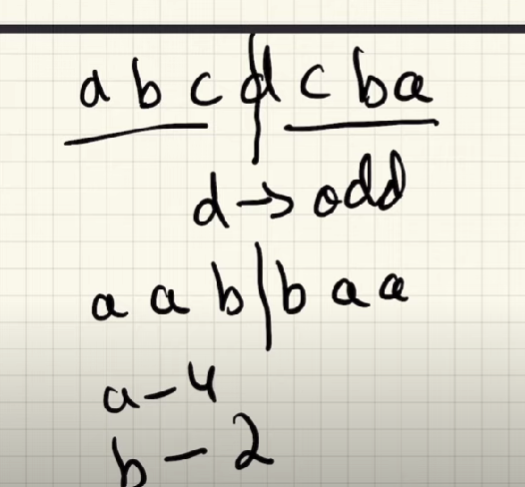 a b c d c b a
d → odd
a a b | b a a
a - 4
b - 2